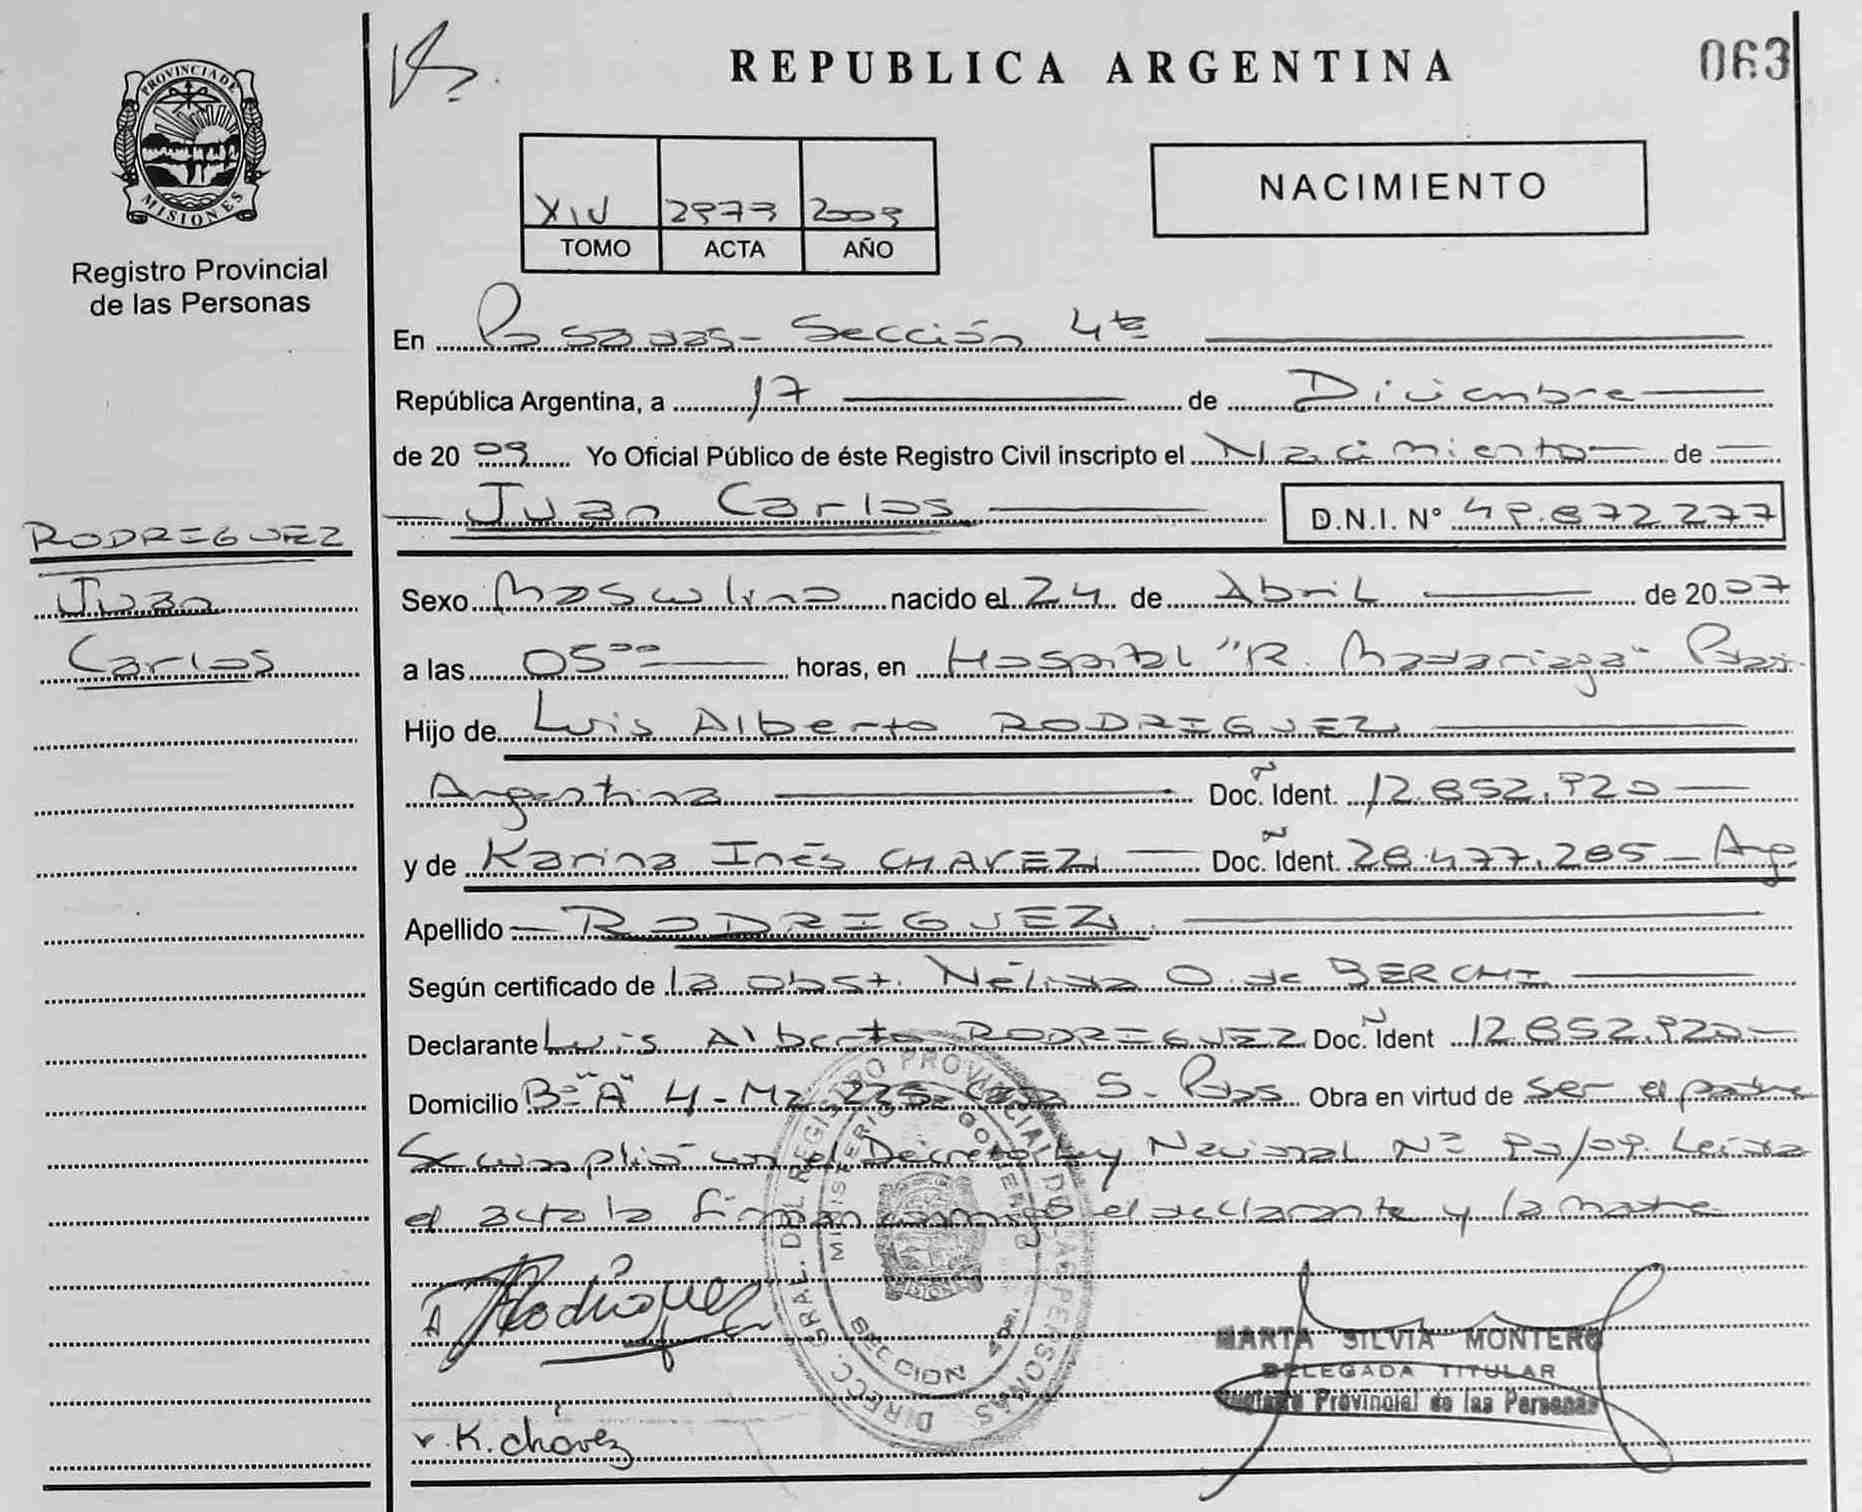 REPUBLICA ARGENTINA
063
PROVINCIA DE
MISIONES
Registro Provincial
de las Personas
NACIMIENTO
XIV 2973 2009
TOMO ACTA AÑO
En Posadas - Sección 4ta
República Argentina, a 17 de Diciembre
de 20 09 Yo Oficial Público de éste Registro Civil inscripto el Nacimiento de
Juan Carlos D.N.I. N° 49.872.277
RODRIGUEZ
Juan
Carlos
Sexo Masculino nacido el 24 de Abril de 20 07
a las 05 00 horas, en Hospital "R. Madariaga" Pdas.
Hijo de Luis Alberto RODRIGUEZ
Argentina Doc. Ident. 12.852.920
y de Karina Inés CHAVEZ Doc. Ident. 28.477.285 - Arg
Apellido RODRIGUEZ
Según certificado de la obst. Nélida O. de BERCHI
Declarante Luis Alberto RODRIGUEZ Doc. Ident 12.852.920
Domicilio B° "A" 4 - Mz. 225 - Casa 5 - Pdas Obra en virtud de ser el padre
Se cumplió con el Decreto Ley Nacional N° 90/09. Leída
el acta la firman conmigo el declarante y la madre
DIRECC. GRAL. DEL REGISTRO PROVINCIAL DE LAS PERSONAS
MINISTERIO DE GOBIERNO
SECCION 4ta.
Rodriguez
MARTA SILVIA MONTERO
DELEGADA TITULAR
Registro Provincial de las Personas
K. chávez